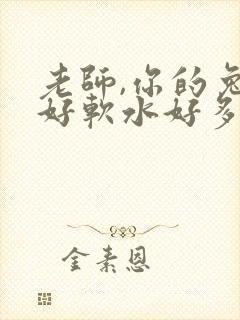 老師,你的兔
好軟水好多
金素恩